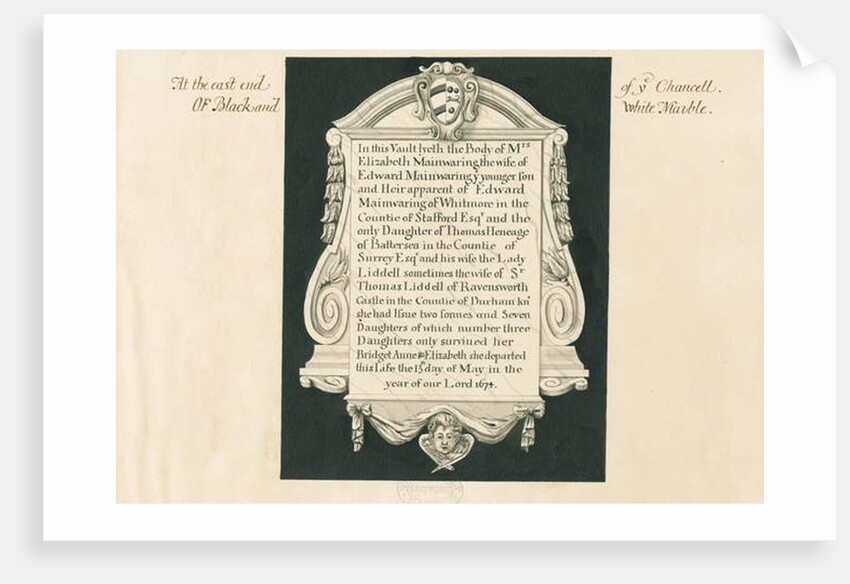 At the east end
OF Black and
of yᵉ Chancell.
White Marble.
In this Vault lyeth the Body of Mʳˢ
Elizabeth Mainwaring the wife of
Edward Mainwaring yᵉ younger son
and Heir apparent of Edward
Mainwaring of Whitmore in the
Countie of Stafford Esqʳ and the
only Daughter of Thomas Heneage
of Battersea in the Countie of
Surrey Esqʳ and his wife the Lady
Liddell sometimes the wife of Sʳ
Thomas Liddell of Ravensworth
Castle in the Countie of Durham knᵗ
she had Issue two sonnes and Seven
Daughters of which number three
Daughters only survived her
Bridget Anne & Elizabeth she departed
this Life the 15ᵗʰ day of May in the
year of our Lord 1674.